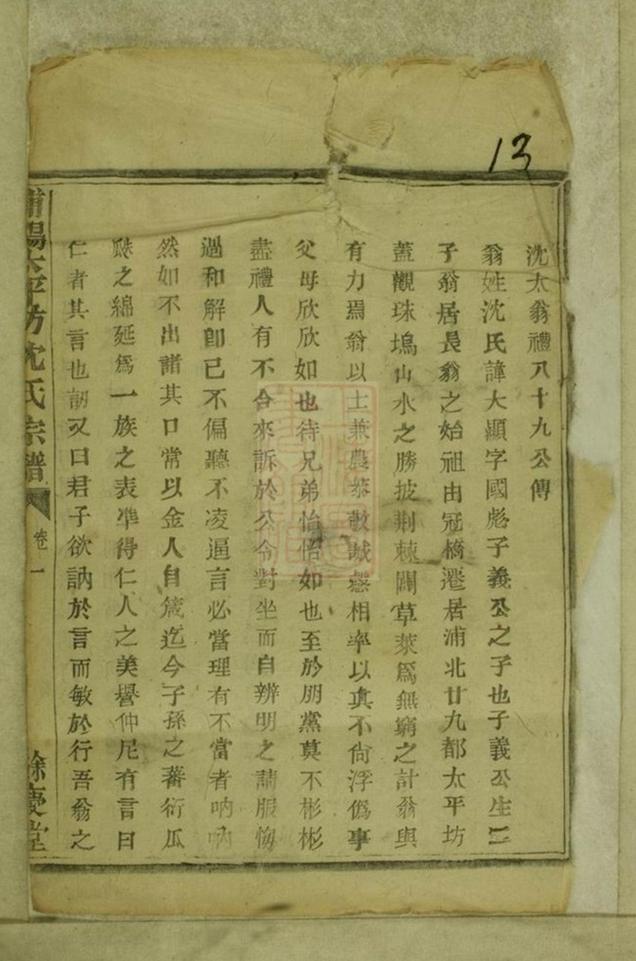 13
沈太翁禮八十九公傳
翁姓沈氏諱大顯字國彪子義公之子也子義公生二
子翁居長翁之始祖由冠橋遷居浦北廿九都太平坊
蓋觀珠塢山水之勝披荆棘闢草萊爲無窮之計翁與
有力焉翁以士兼農恭敬誠慤相率以真不尙浮僞事
父母欣欣如也待兄弟怡怡如也至於朋黨莫不彬彬
盡禮人有不合來訴於公令對坐而自辨明之請服悔
過和解卽已不偏聽不凌逼言必當理有不當者吶吶
然如不出諸其口常以金人自箴迄今子孫之蕃衍瓜
瓞之綿延爲一族之表凖得仁人之美譽仲尼有言曰
仁者其言也訒又曰君子欲訥於言而敏於行吾翁之
浦陽太平坊沈氏宗譜
卷一
餘慶堂